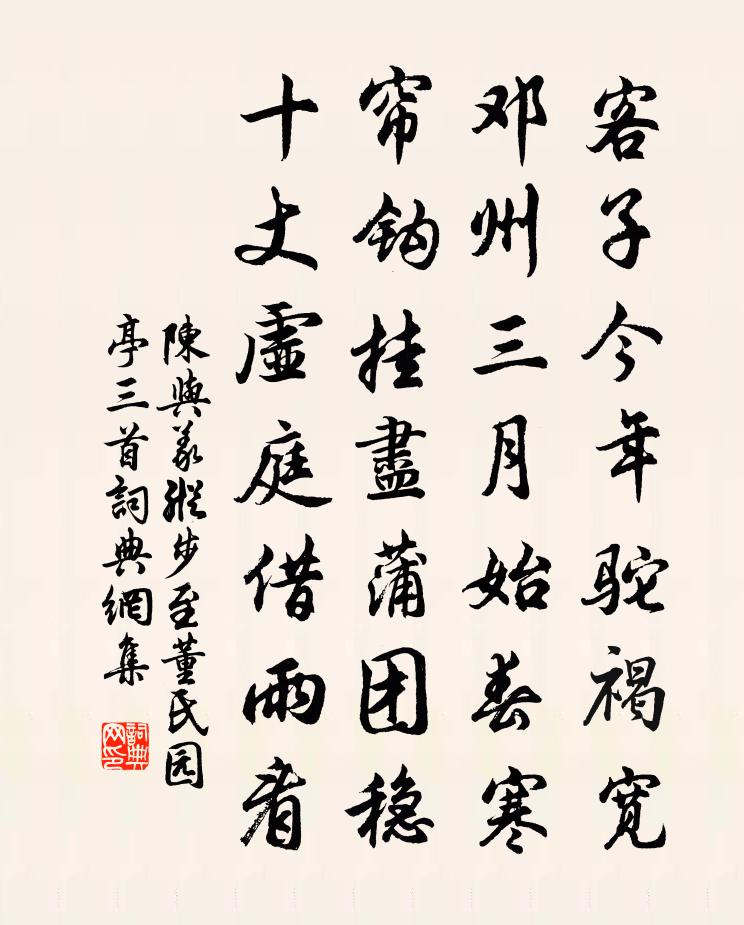 客子今年駝褐宽
邓州三月始春寒
帘钩挂盡蒲团稳
十丈虛庭借雨看
陳與義縱步至董民园
亭三首詞典網集
詞典网印